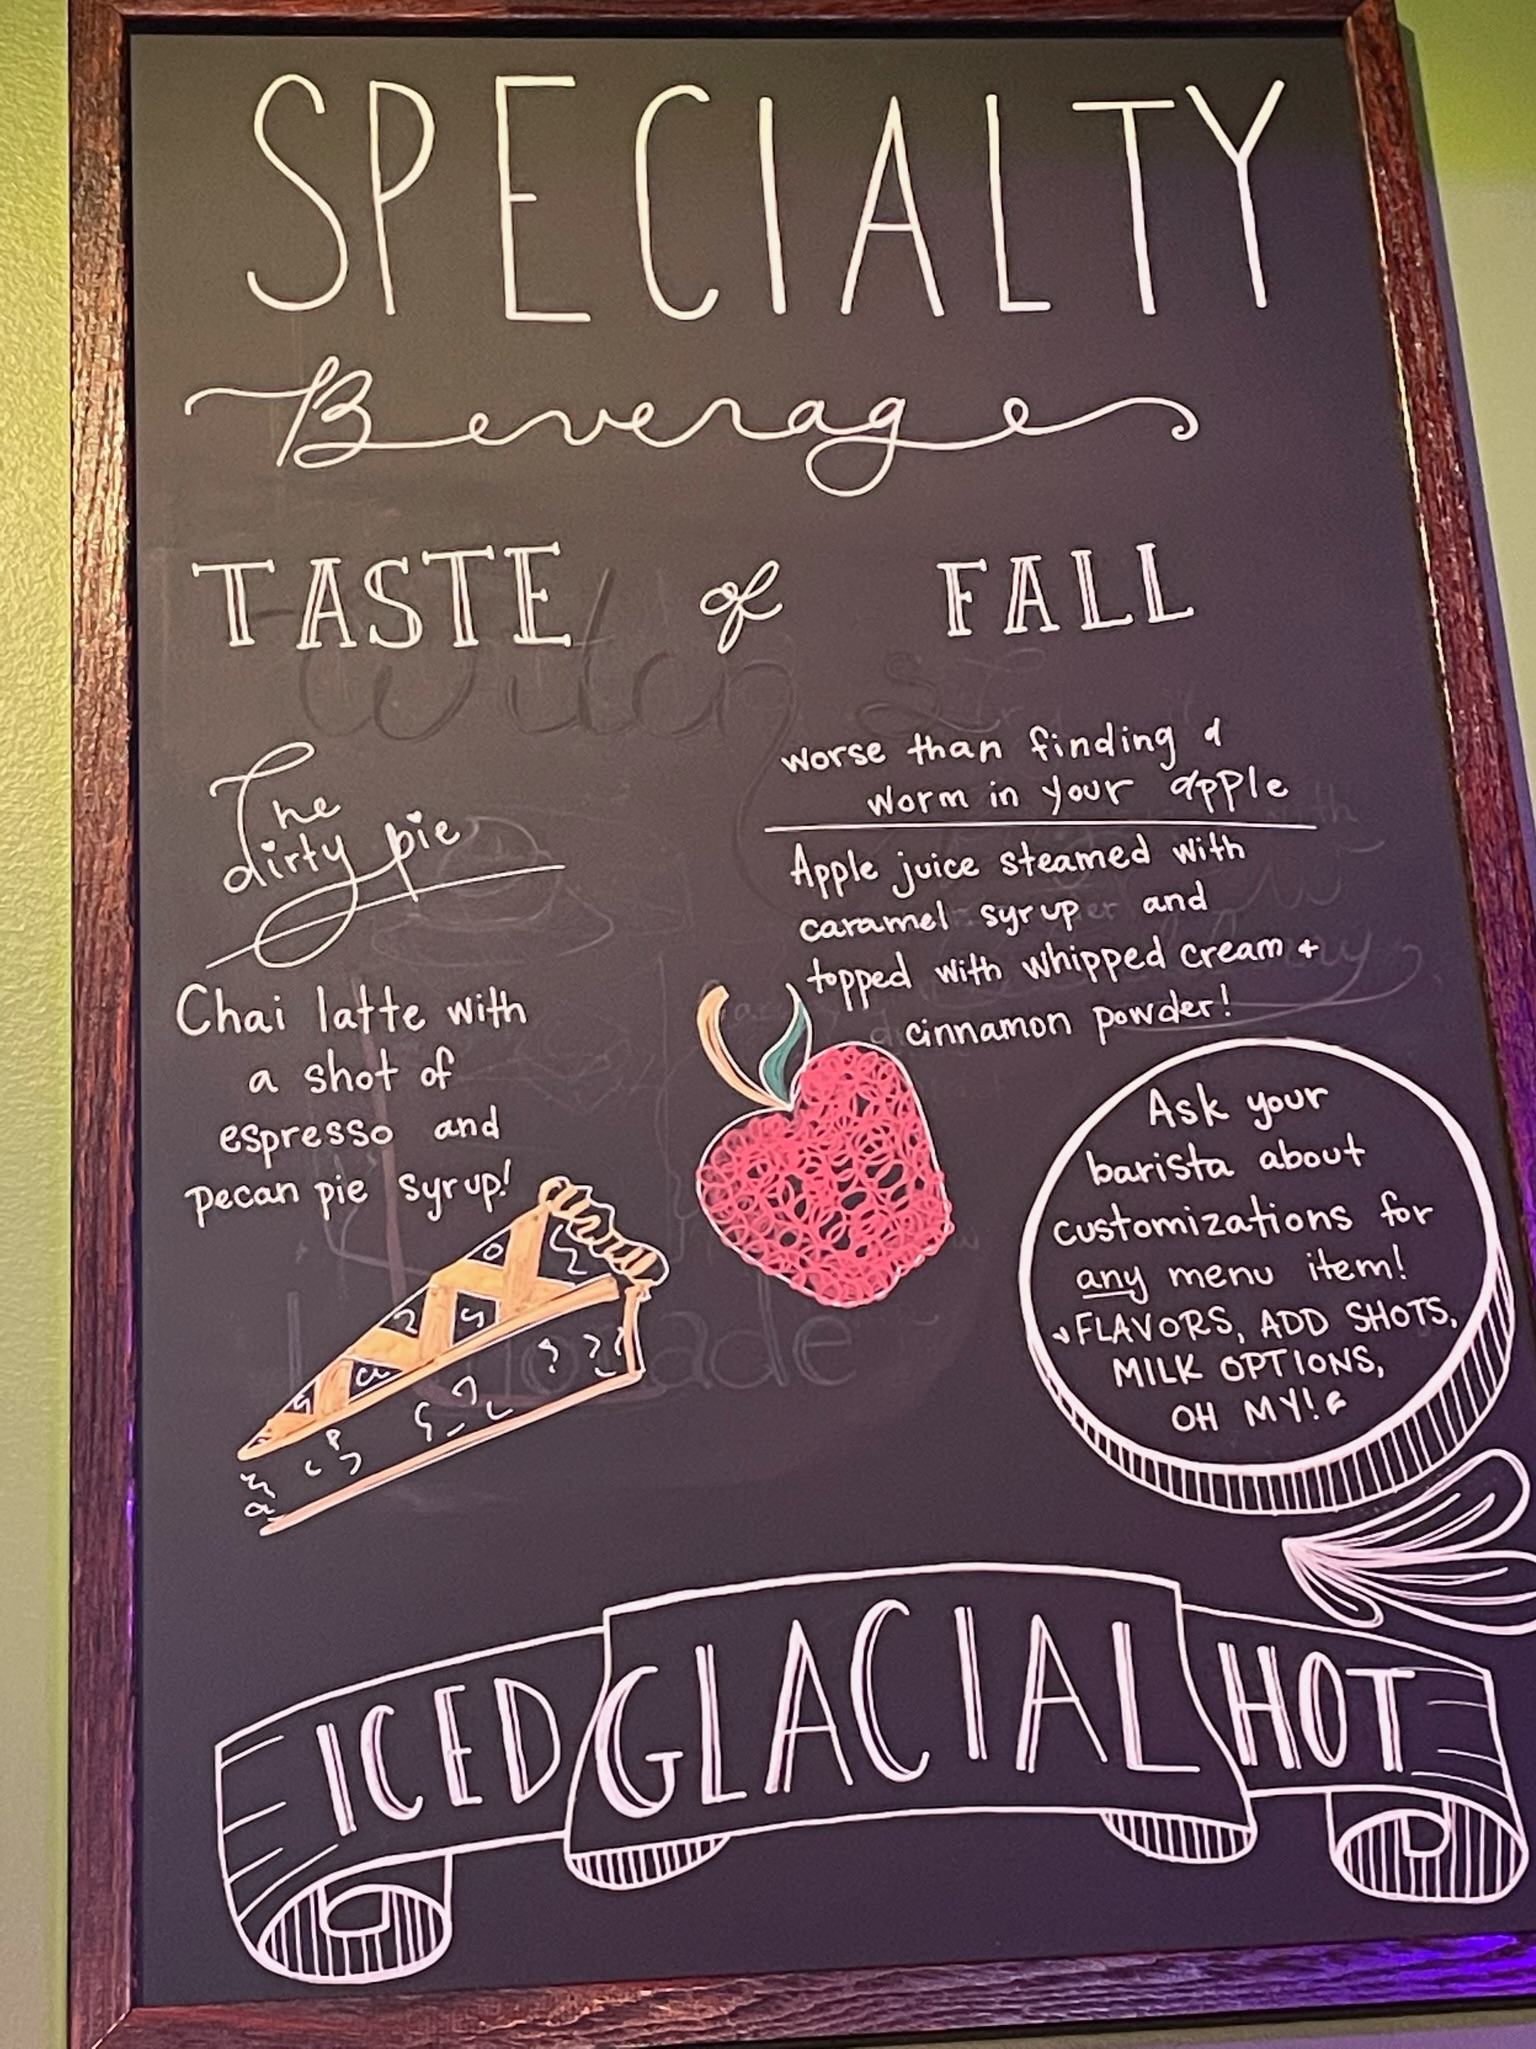 SPECIALTY
Beverages
TASTE of FALL
The
dirty pie
Chai latte with
a shot of
espresso and
pecan pie syrup!
worse than finding a
worm in your apple
Apple juice steamed with
caramel syrup and
topped with whipped cream +
cinnamon powder!
Ask your
barista about
customizations for
any menu item!
FLAVORS, ADD SHOTS,
MILK OPTIONS,
OH MY!
ICED GLACIAL HOT